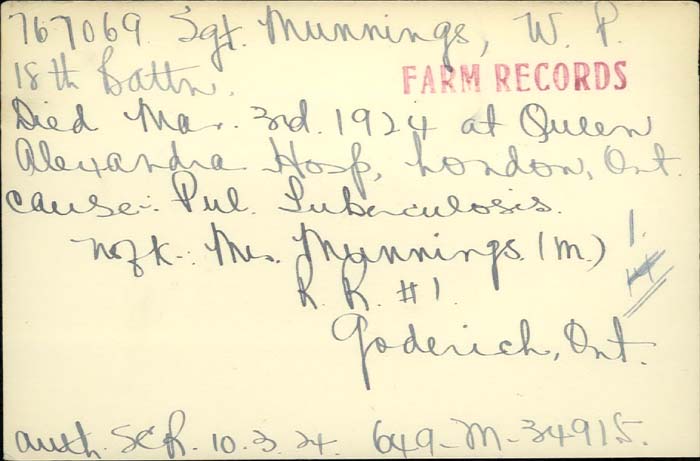 767069 Sgt. Munnings, W. P.
18th Battn.
FARM RECORDS
Died Mar. 3rd. 1924 at Queen
Alexandra Hosp, London, Ont.
cause:- Pul. Tuberculosis.
nofk:- Mrs. Munnings (M.)
R. R. #1.
Goderich, Ont.
1.
auth. SCR. 10.3.24. 649-M-34915.